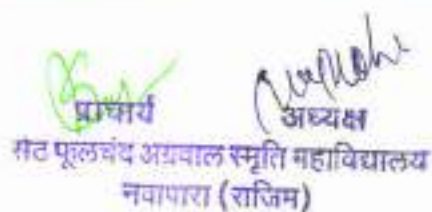 प्राचार्य अध्यक्ष
सेठ फूलचंद अग्रवाल स्मृति महाविद्यालय
नवापारा (राजिम)